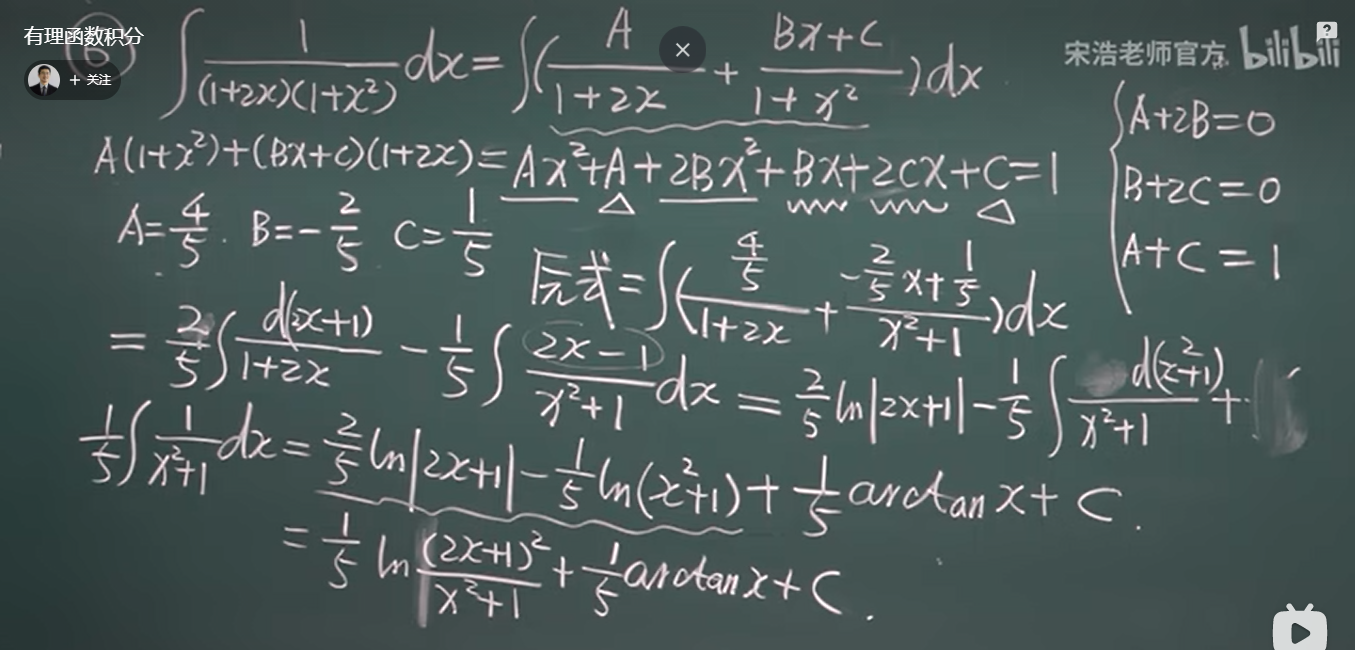 有理函数积分
⑥ ∫ 1/((1+2x)(1+x²)) dx = ∫( A/(1+2x) + (Bx+C)/(1+x²) )dx
+ 关注
宋浩老师官方 bilibili
A(1+x²)+(Bx+C)(1+2x)=Ax²+A+2Bx²+Bx+2Cx+C=1
A+2B=0
B+2C=0
A+C=1
A=4/5. B=-2/5 C=1/5
原式=∫( (4/5)/(1+2x) + (-2/5 x+1/5)/(x²+1) )dx
= 2/5 ∫ d(2x+1)/(1+2x) - 1/5 ∫ (2x-1)/(x²+1) dx = 2/5 ln|2x+1| - 1/5 ∫ d(x²+1)/(x²+1) +
1/5 ∫ 1/(x²+1) dx = 2/5 ln|2x+1| - 1/5 ln(x²+1) + 1/5 arctan x + C.
= 1/5 ln (2x+1)²/(x²+1) + 1/5 arctan x + C.